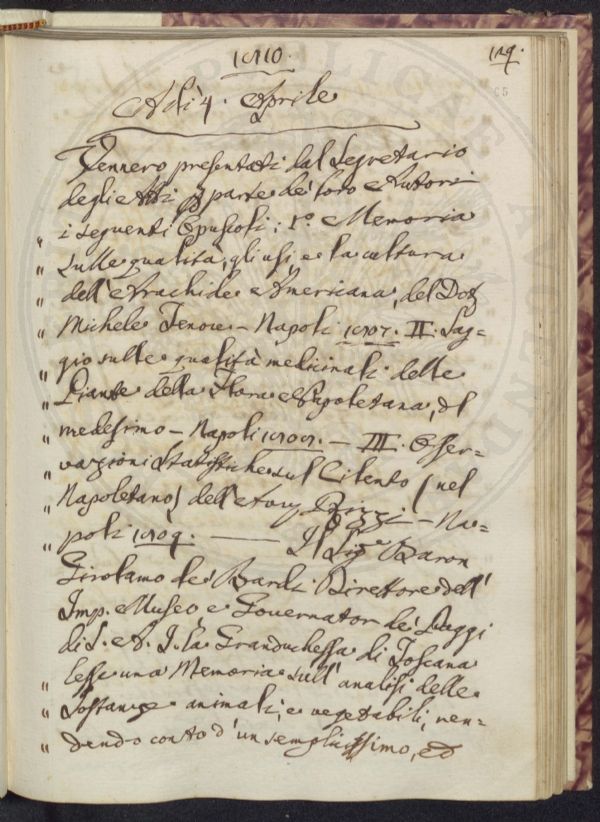 1810.
129.
Adì 4. Aprile
Vennero presentati dal Segretario
degli Atti p parte de' loro Autori
i seguenti Opuscoli: I.º Memoria
" sulle qualità, gli usi e la cultura
" dell'Arachide Americana, del Dott
" Michele Tenore - Napoli 1807. II. Sag-
" gio sulle qualità medicinali delle
" Piante della Flora Napoletana, del
" medesimo - Napoli 1808. - III. Osser-
" vazioni Statistiche sul Cilento (nel
" Napoletano) dell' Bizzi - Na-
" poli 1809. Il Sigr Baron
Girolamo de' Bardi Direttore dell'
Imp. Museo e Governator de' Paggi
di S. A. I. la Granduchessa di Toscana
lesse una Memoria sull'analisi delle
" Sostanze animali, e vegetabili, ren-
" dendo conto d'un semplicissimo, ed